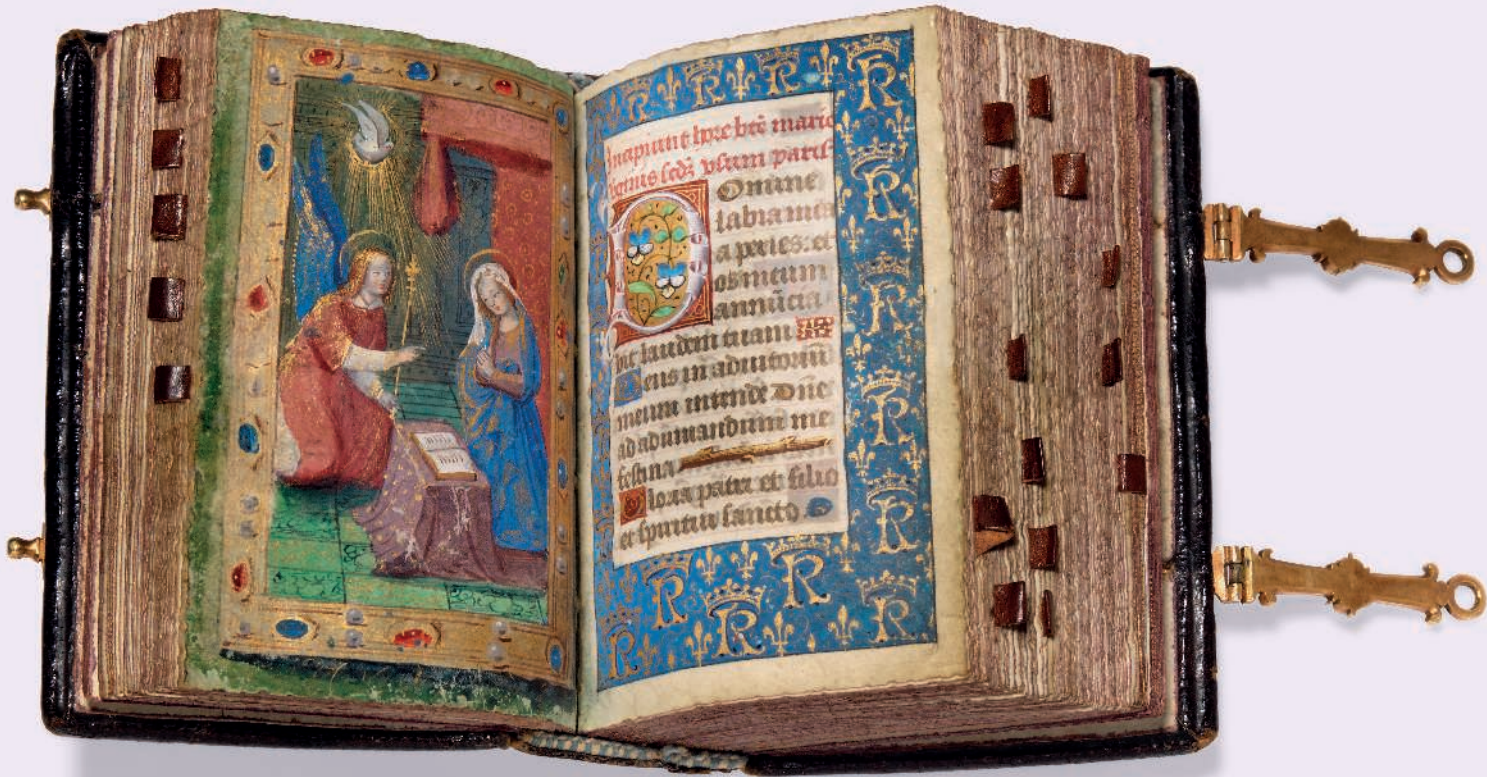 Incipiunt hore btē marie
virginis scdʒ vsum parif
Domine
labia mea
a peries: et
os meum
annūcia
bit laudem tuam
Deus in adiutoriū
meum intende Dn̄e
ad adiuuandum me
festina
Gloria patri et filio
et spiritui sancto.